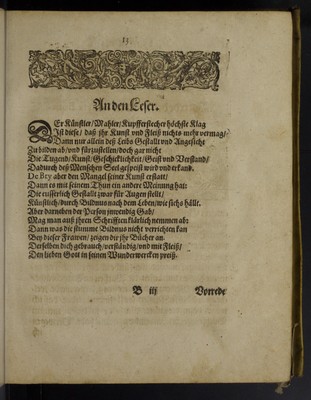 An den Leser.
DEr Künstler/Mahler/Kupfferstecher höchste Klag
Ist diese/ daß jhr Kunst vnd Fleiß nichts mehr vermag/
Dann nur allein deß Leibs Gestallt vnd Angesicht
Zu bilden ab/vnd fürzustellen/doch gar nicht
Die Tugend/Kunst/Geschicklichkeit/Geist vnd Verstand/
Dadurch deß Menschen Seel gspeist wird vnd erkant.
De Bry aber den Mangel seiner Kunst erstatt/
Dann es mit seinem Thun ein andere Meinung hat:
Die eusserlich Gestallt zwar für Augen stellt/
Künstlich/durch Bildnus nach dem Leben/wie sichs hällt.
Aber darneben der Person jnwendig Gab/
Mag man auß jhren Schrifften klärlich nemmen ab:
Dann was die stumme Bildnus nicht verrichten kan
Bey dieser Frawen/ zeigen dir jhr Bücher an.
Derselben dich gebrauch/verständig/vnd mit Fleiß/
Den lieben Gott in seinen Wunderwercken preiß.
B iij Vorrede